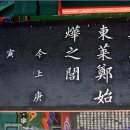 東萊鄭始
燁之閭
今上庚
寅